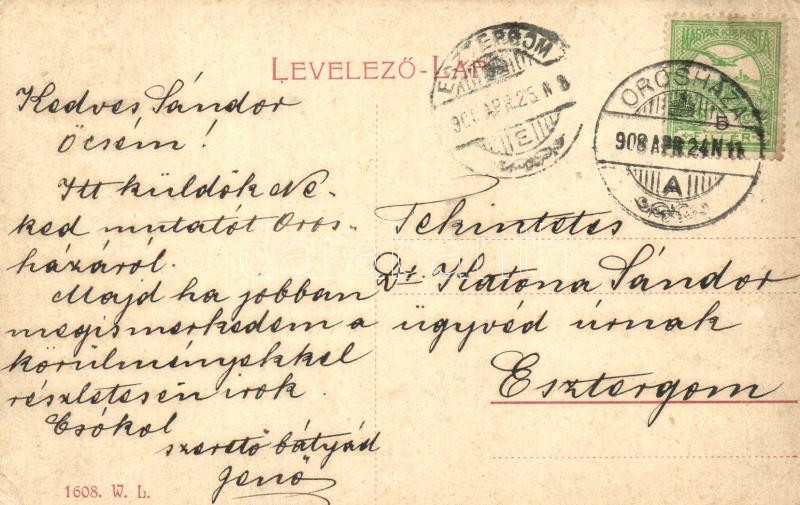 LEVELEZŐ-LAP
MAGYAR KIR. POSTA
ESZTERGOM
908 APR. 25 N 8
E
OROSHÁZA
908 APR 24 N
A
Kedves Sándor
Öcsém!
Itt küldök Ne-
ked mutatót Oros-
házáról.
Majd ha jobban
megismerkedem a
körülményekkel
részletesen írok.
Csókol
szerető bátyád
Jenő
Tekintetes
Dr. Katona Sándor
ügyvéd úrnak
Esztergom
1608. W. L.